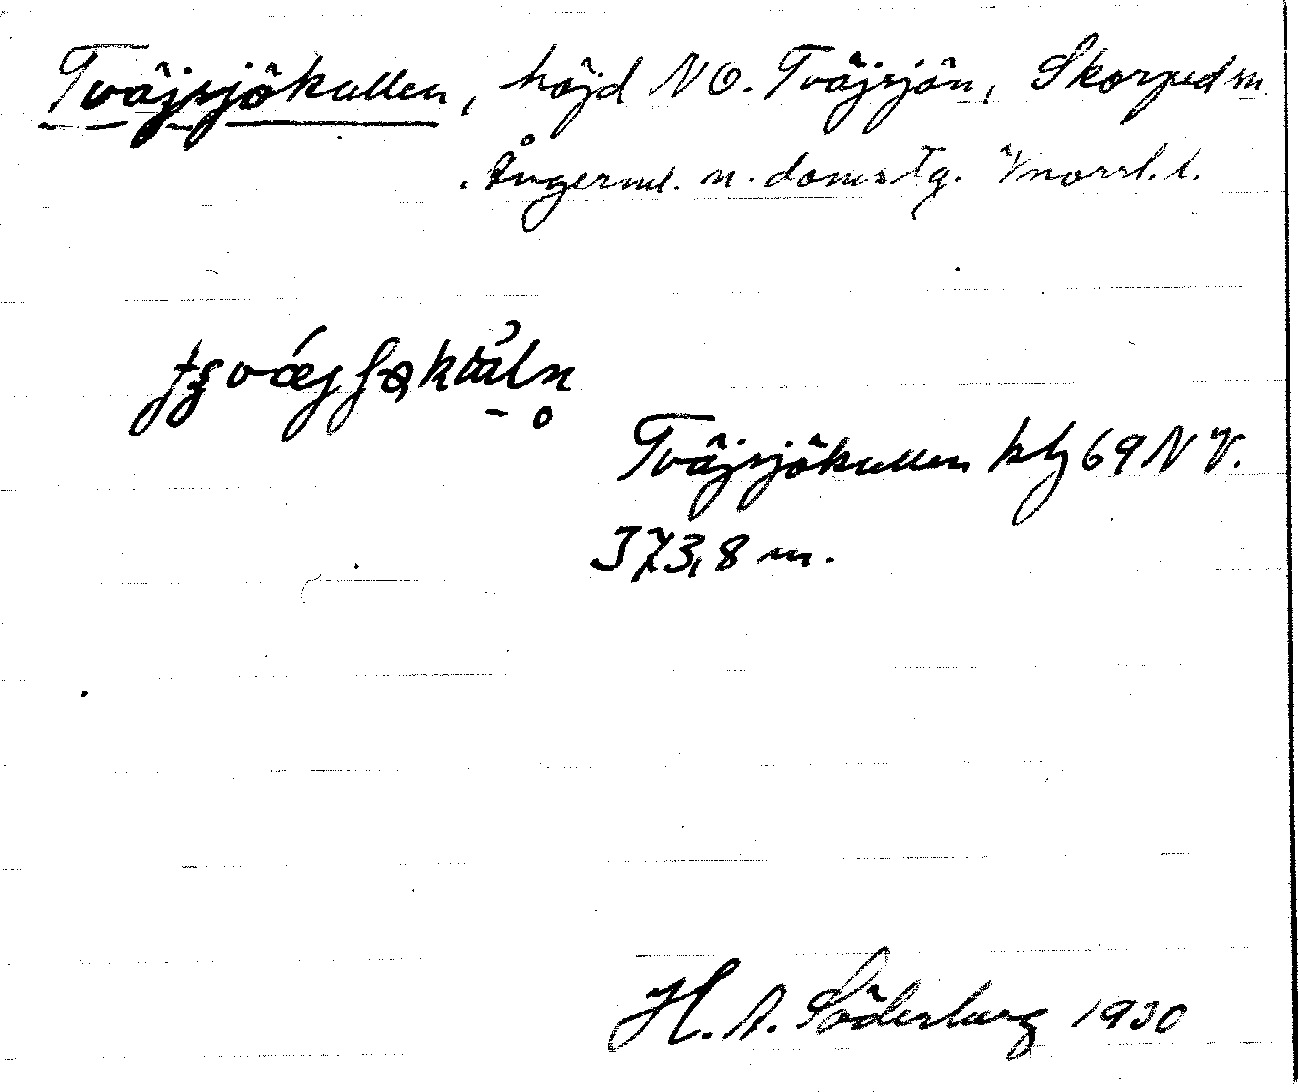 Tväjsjökullen, höjd NO. Tväjsjön, Skorped sn
Ångerml. n. domstg. Vnorrl. l.
Tväjsjökullen kbl 69 NV.
373,8 m.
H. A. Söderberg 1930